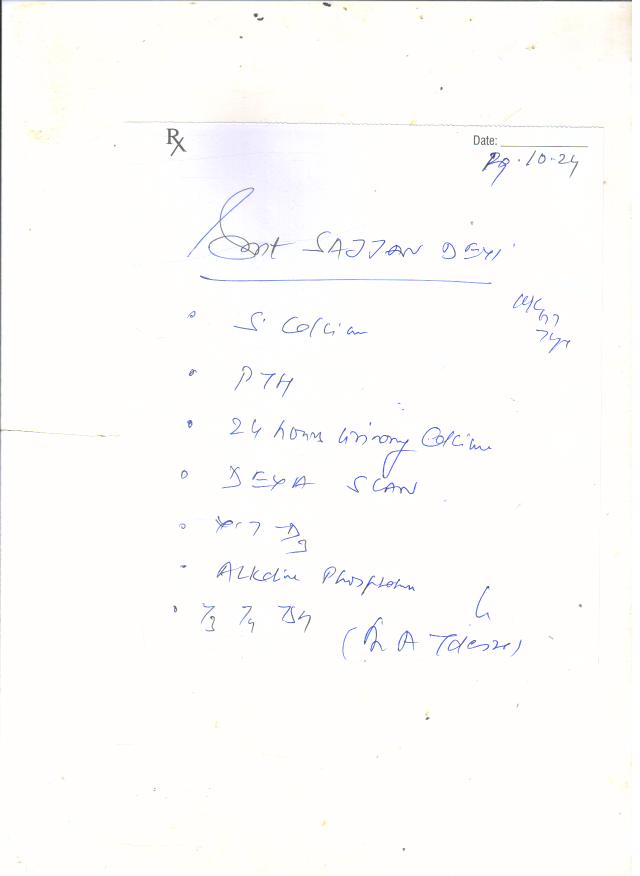 Rx
Date:
10-24
Smt SAJJAN DEVI
S. Calcium
PTH
24 hours Urinary Calcium
DEXA SCAN
D3
Alkaline Phosphatase
T3 T4 TSH
(Dr A